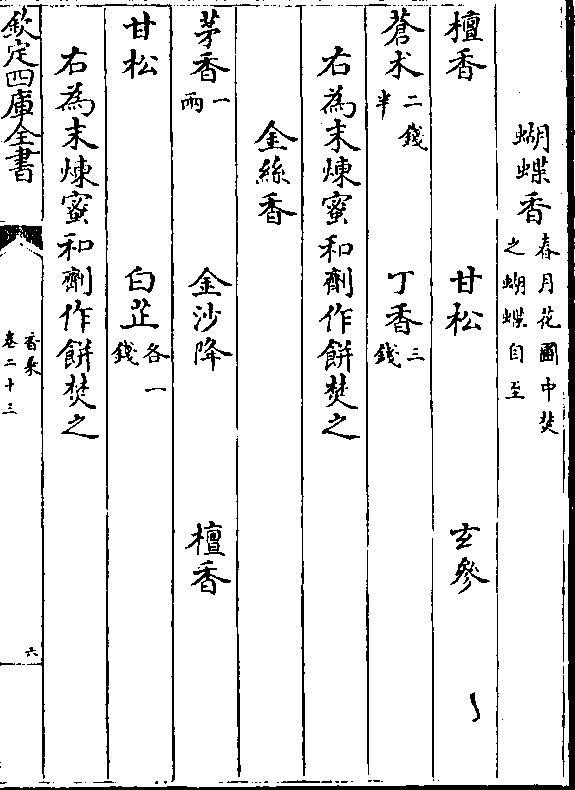 蝴蝶香春月花圃中焚之蝴蝶自至
檀香 甘松 玄參
蒼术二錢半 丁香三錢
右為末煉蜜和劑作餅焚之
金絲香
茅香一兩 金沙降 檀香
甘松 白芷各一錢
右為末煉蜜和劑作餅焚之
欽定四庫全書 香乘卷二十三 六